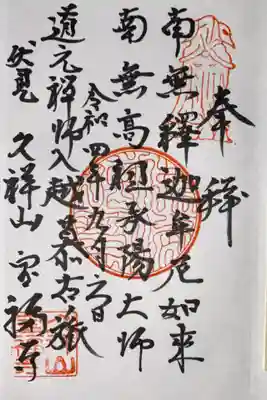 奉拝
南無釋迦牟尼如来
南無高祖承陽大師
令和四年九月六日
道元禅師入越
伏見 久祥山 宝福寺